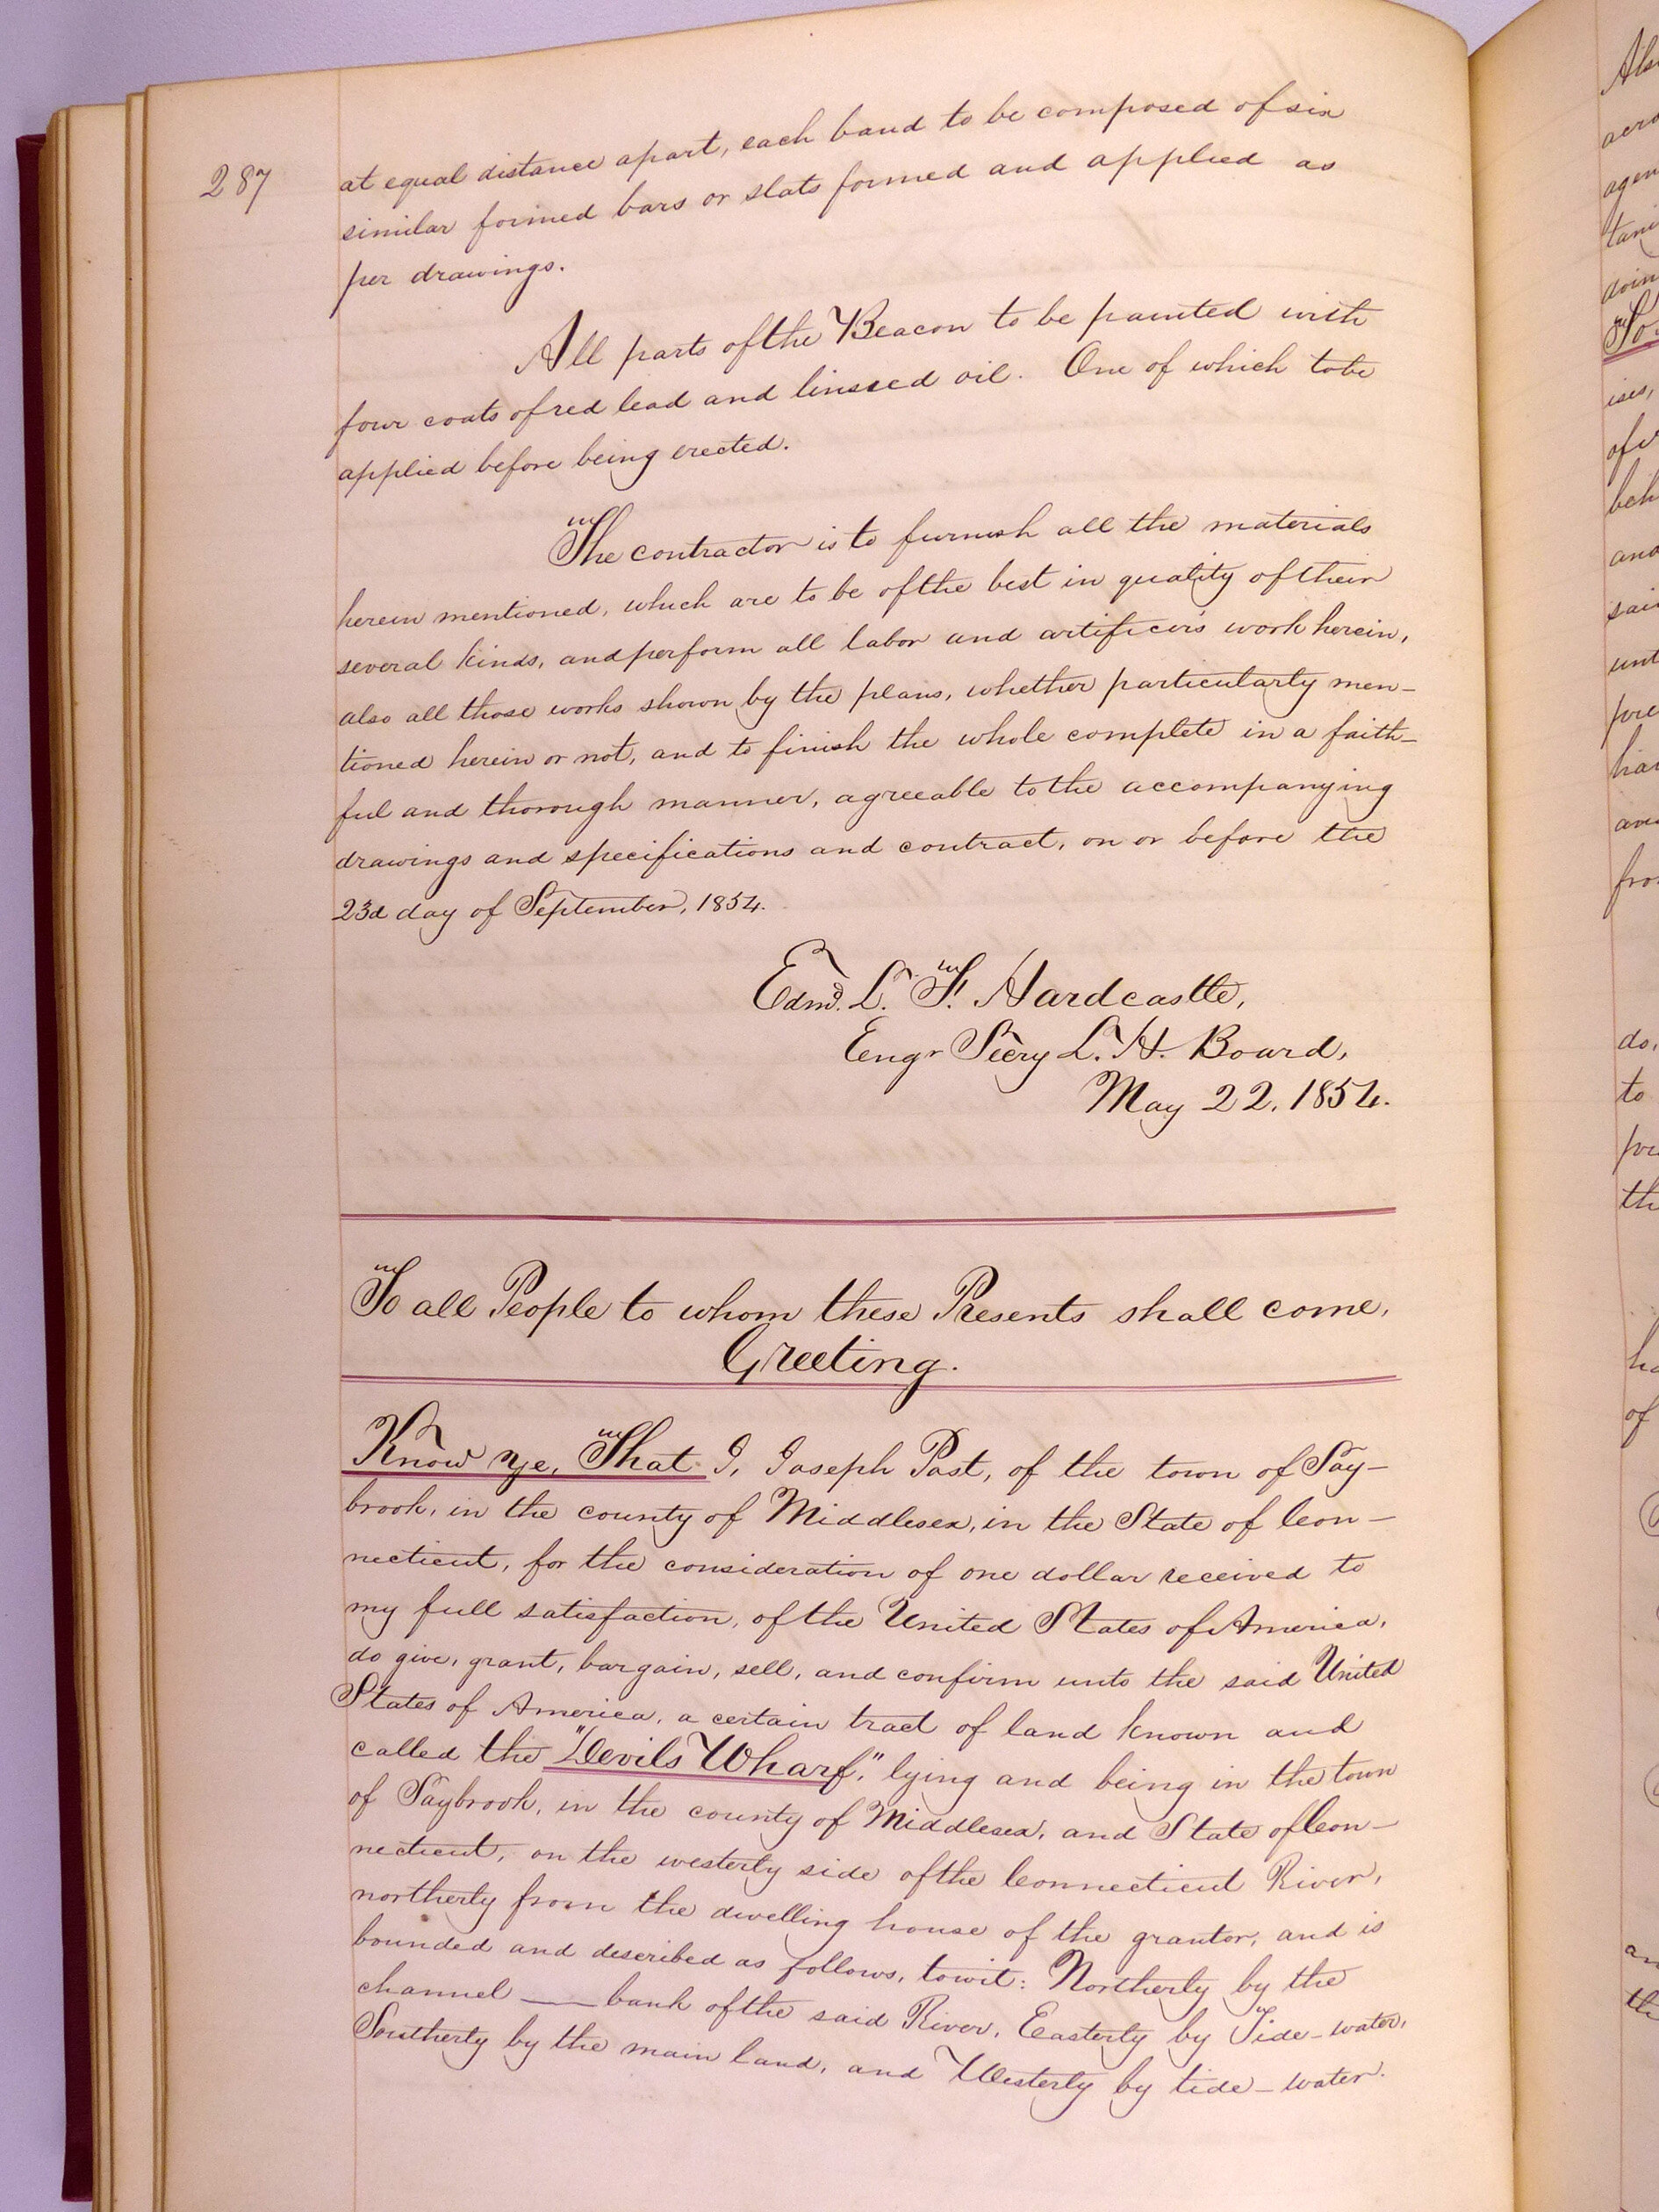 287
at equal distance apart, each band to be composed of six
similar formed bars or slats formed and applied as
per drawings.
All parts of the Beacon to be painted with
four coats of red lead and linseed oil. One of which to be
applied before being erected.
The contractor is to furnish all the materials
herein mentioned, which are to be of the best in quality of their
several kinds, and perform all labor and artificer's work herein,
also all those works shown by the plans, whether particularly men-
tioned herein or not, and to finish the whole complete in a faith-
ful and thorough manner, agreeable to the accompanying
drawings and specifications and contract, on or before the
23d day of September, 1854.
Edmd. L. F. Hardcastle,
Engr Secry L. H. Board,
May 22, 1854.
To all People to whom these Presents shall come,
Greeting.
Know Ye, That I, Joseph Post, of the town of Say-
brook, in the county of Middlesex, in the State of Con-
necticut, for the consideration of one dollar received to
my full satisfaction, of the United States of America,
do give, grant, bargain, sell, and confirm unto the said United
States of America, a certain tract of land known and
called the "Devils Wharf," lying and being in the town
of Saybrook, in the county of Middlesex, and State of Con-
necticut, on the westerly side of the Connecticut River,
northerly from the dwelling house of the grantor, and is
bounded and described as follows, towit: Northerly by the
channel — bank of the said River, Easterly by Tide-water,
Southerly by the main land, and Westerly by tide-water.